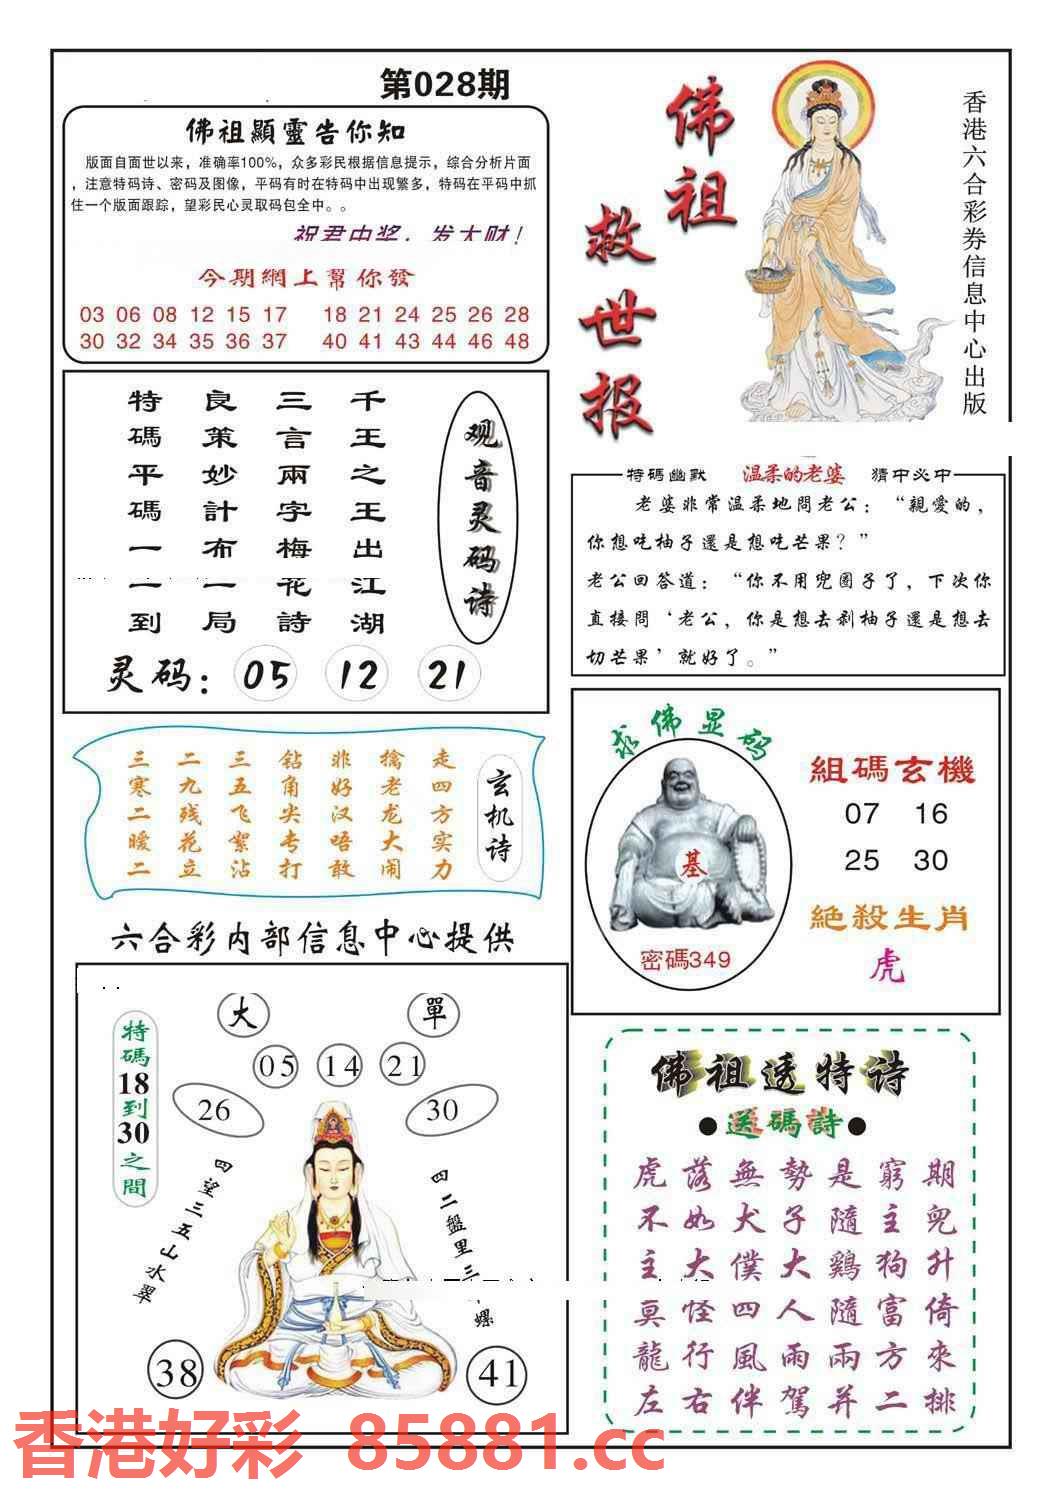 第028期
佛祖顯靈告你知
版面自面世以来，准确率100%，众多彩民根据信息提示，综合分析片面
，注意特码诗、密码及图像，平码有时在特码中出现繁多，特码在平码中抓
住一个版面跟踪，望彩民心灵取码包全中。。
祝君中奖，发大财！
今期網上幫你發
03 06 08 12 15 17 18 21 24 25 26 28
30 32 34 35 36 37 40 41 43 44 46 48
佛祖
救世报
香港六合彩券信息中心出版
观音灵码诗
千王之王出江湖
三言兩字梅花詩
良策妙計布一局
特碼平碼一一到
灵码：05 12 21
特碼幽默 温柔的老婆 猜中必中
老婆非常温柔地問老公：“親愛的，
你想吃柚子還是想吃芒果？”
老公回答道：“你不用兜圈子了，下次你
直接問‘老公，你是想去剁柚子還是想去
切芒果’就好了。”
玄机诗
走四方实力
擒老龙大闹
非好汉唔敢
钻角尖专打
三五飞絮沾
二九残花立
三寒二暧二
求佛显码
基
密碼349
組碼玄機
07 16
25 30
絕殺生肖
虎
六合彩内部信息中心提供
特碼18到30之間
大 單
05 14 21
26 30
四望三五山水翠
四二盤里三
螺
38 41
佛祖透特诗
●送碼詩●
虎落無勢是窮期
不如犬子隨主兜
主大僕大鷄狗升
莫怪四人隨富倚
龍行風雨兩方來
左右伴駕并二排
香港好彩 85881.cc